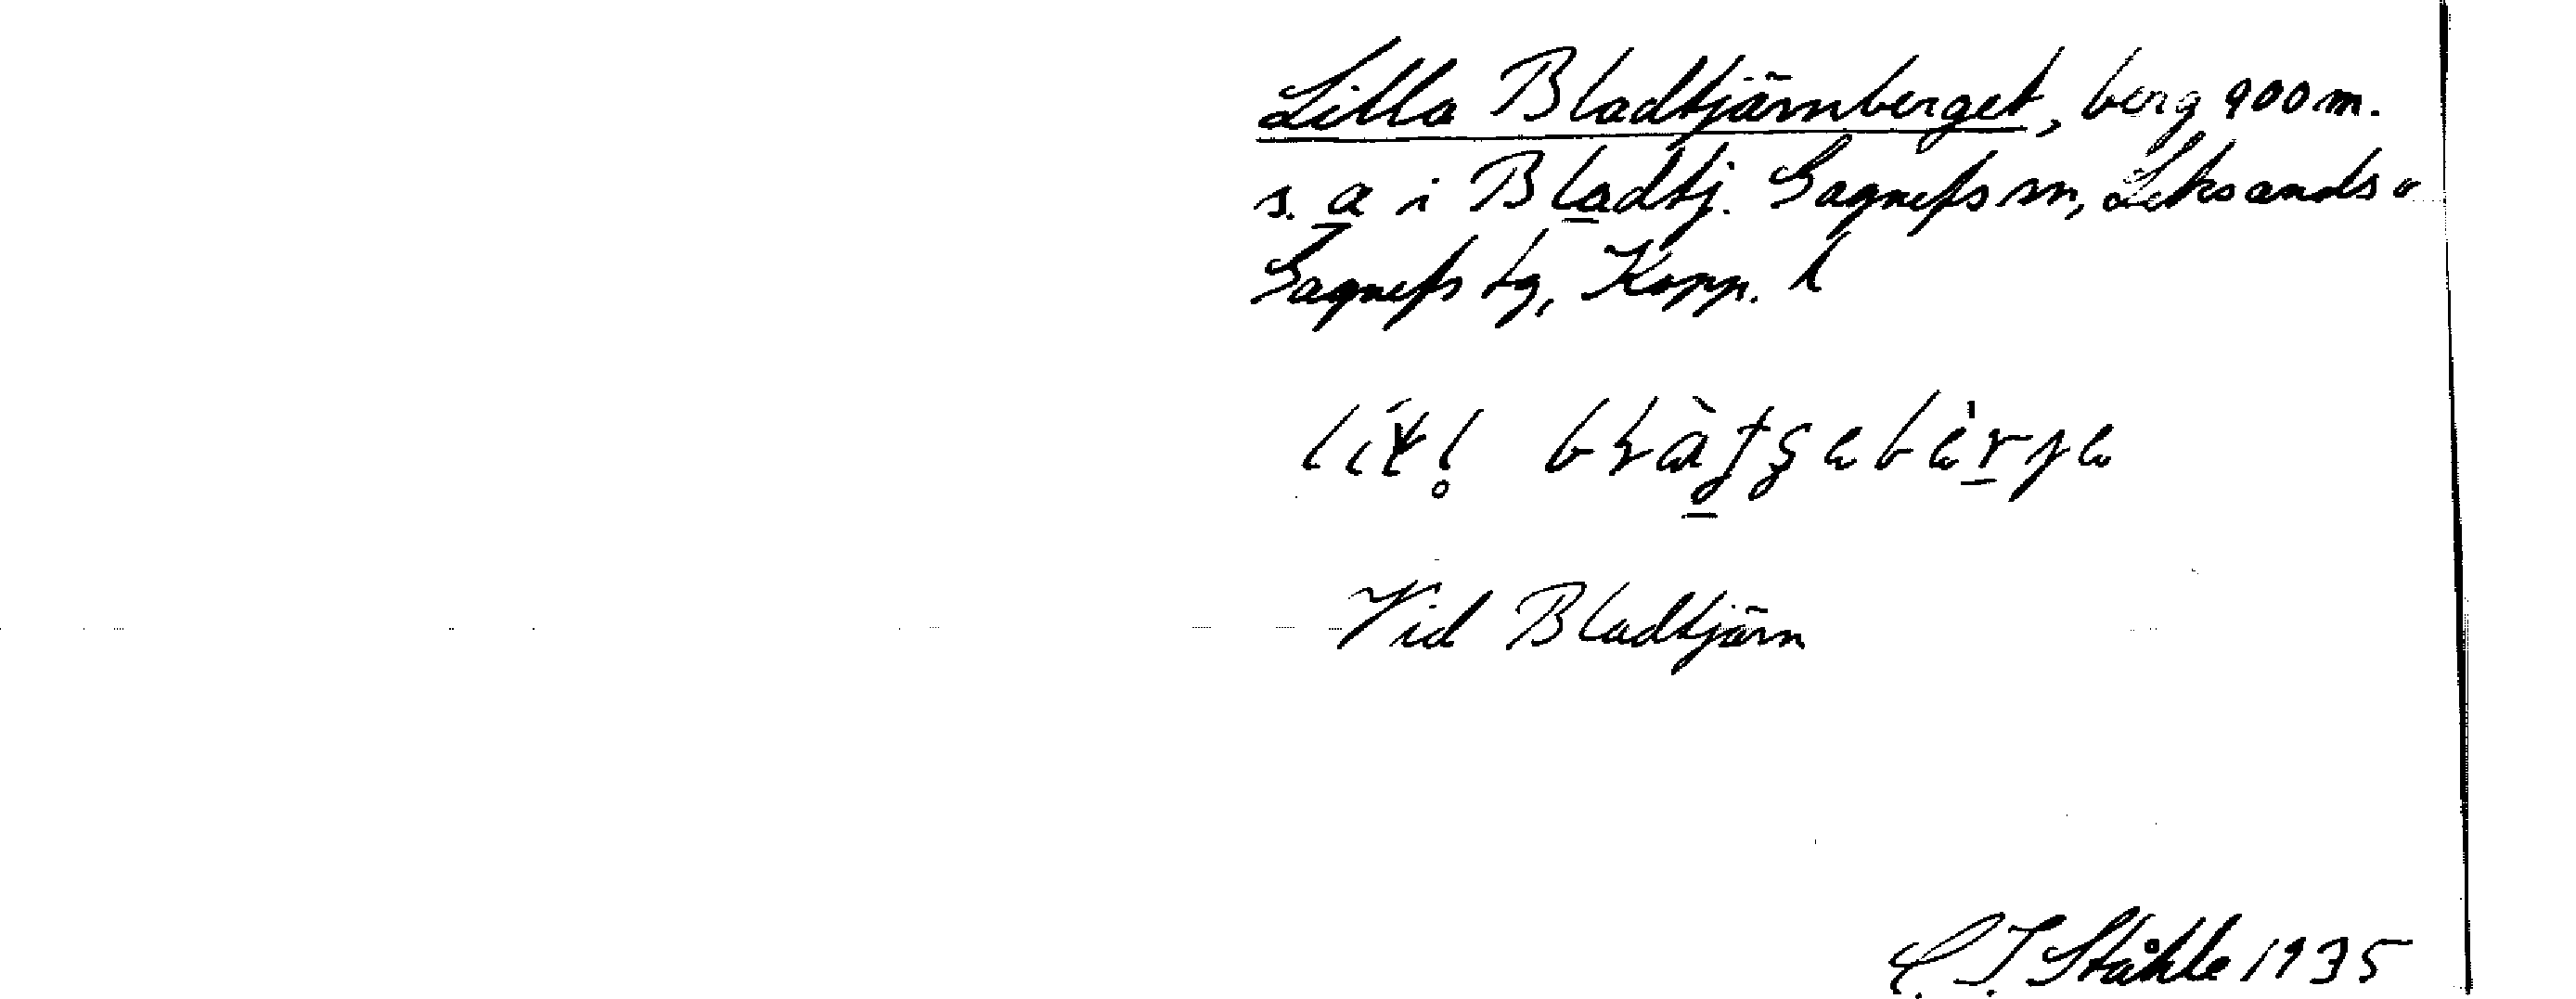 Lilla Bladtjärnberget, berg 900 m.
s. a i Bladtj. Gagnefs sn, Leksands o
Gagnefs tg, Kopp. l
Vid Bladtjärn
C. I. Ståhle 1935